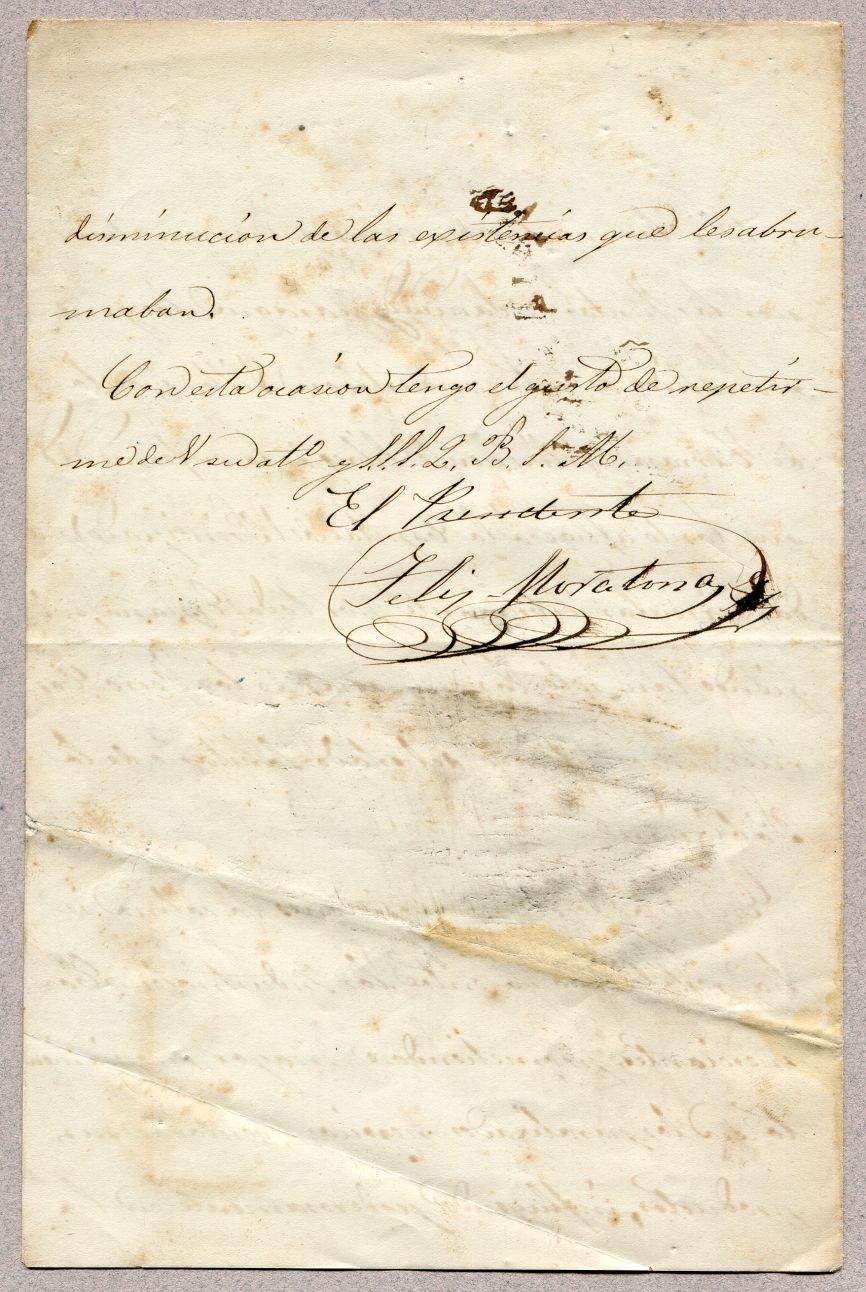 disminucion de las existencias que les abru-
maban.
Con esta ocasion tengo el gusto de repetir-
me de V su atº y S.S.Q.B.S.M.
El Presidente
Felix Moratona